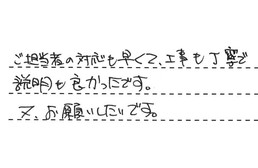 ご担当者の対応も早くて、工事も丁寧で
説明も良かったです。
又、お願いしたいです。